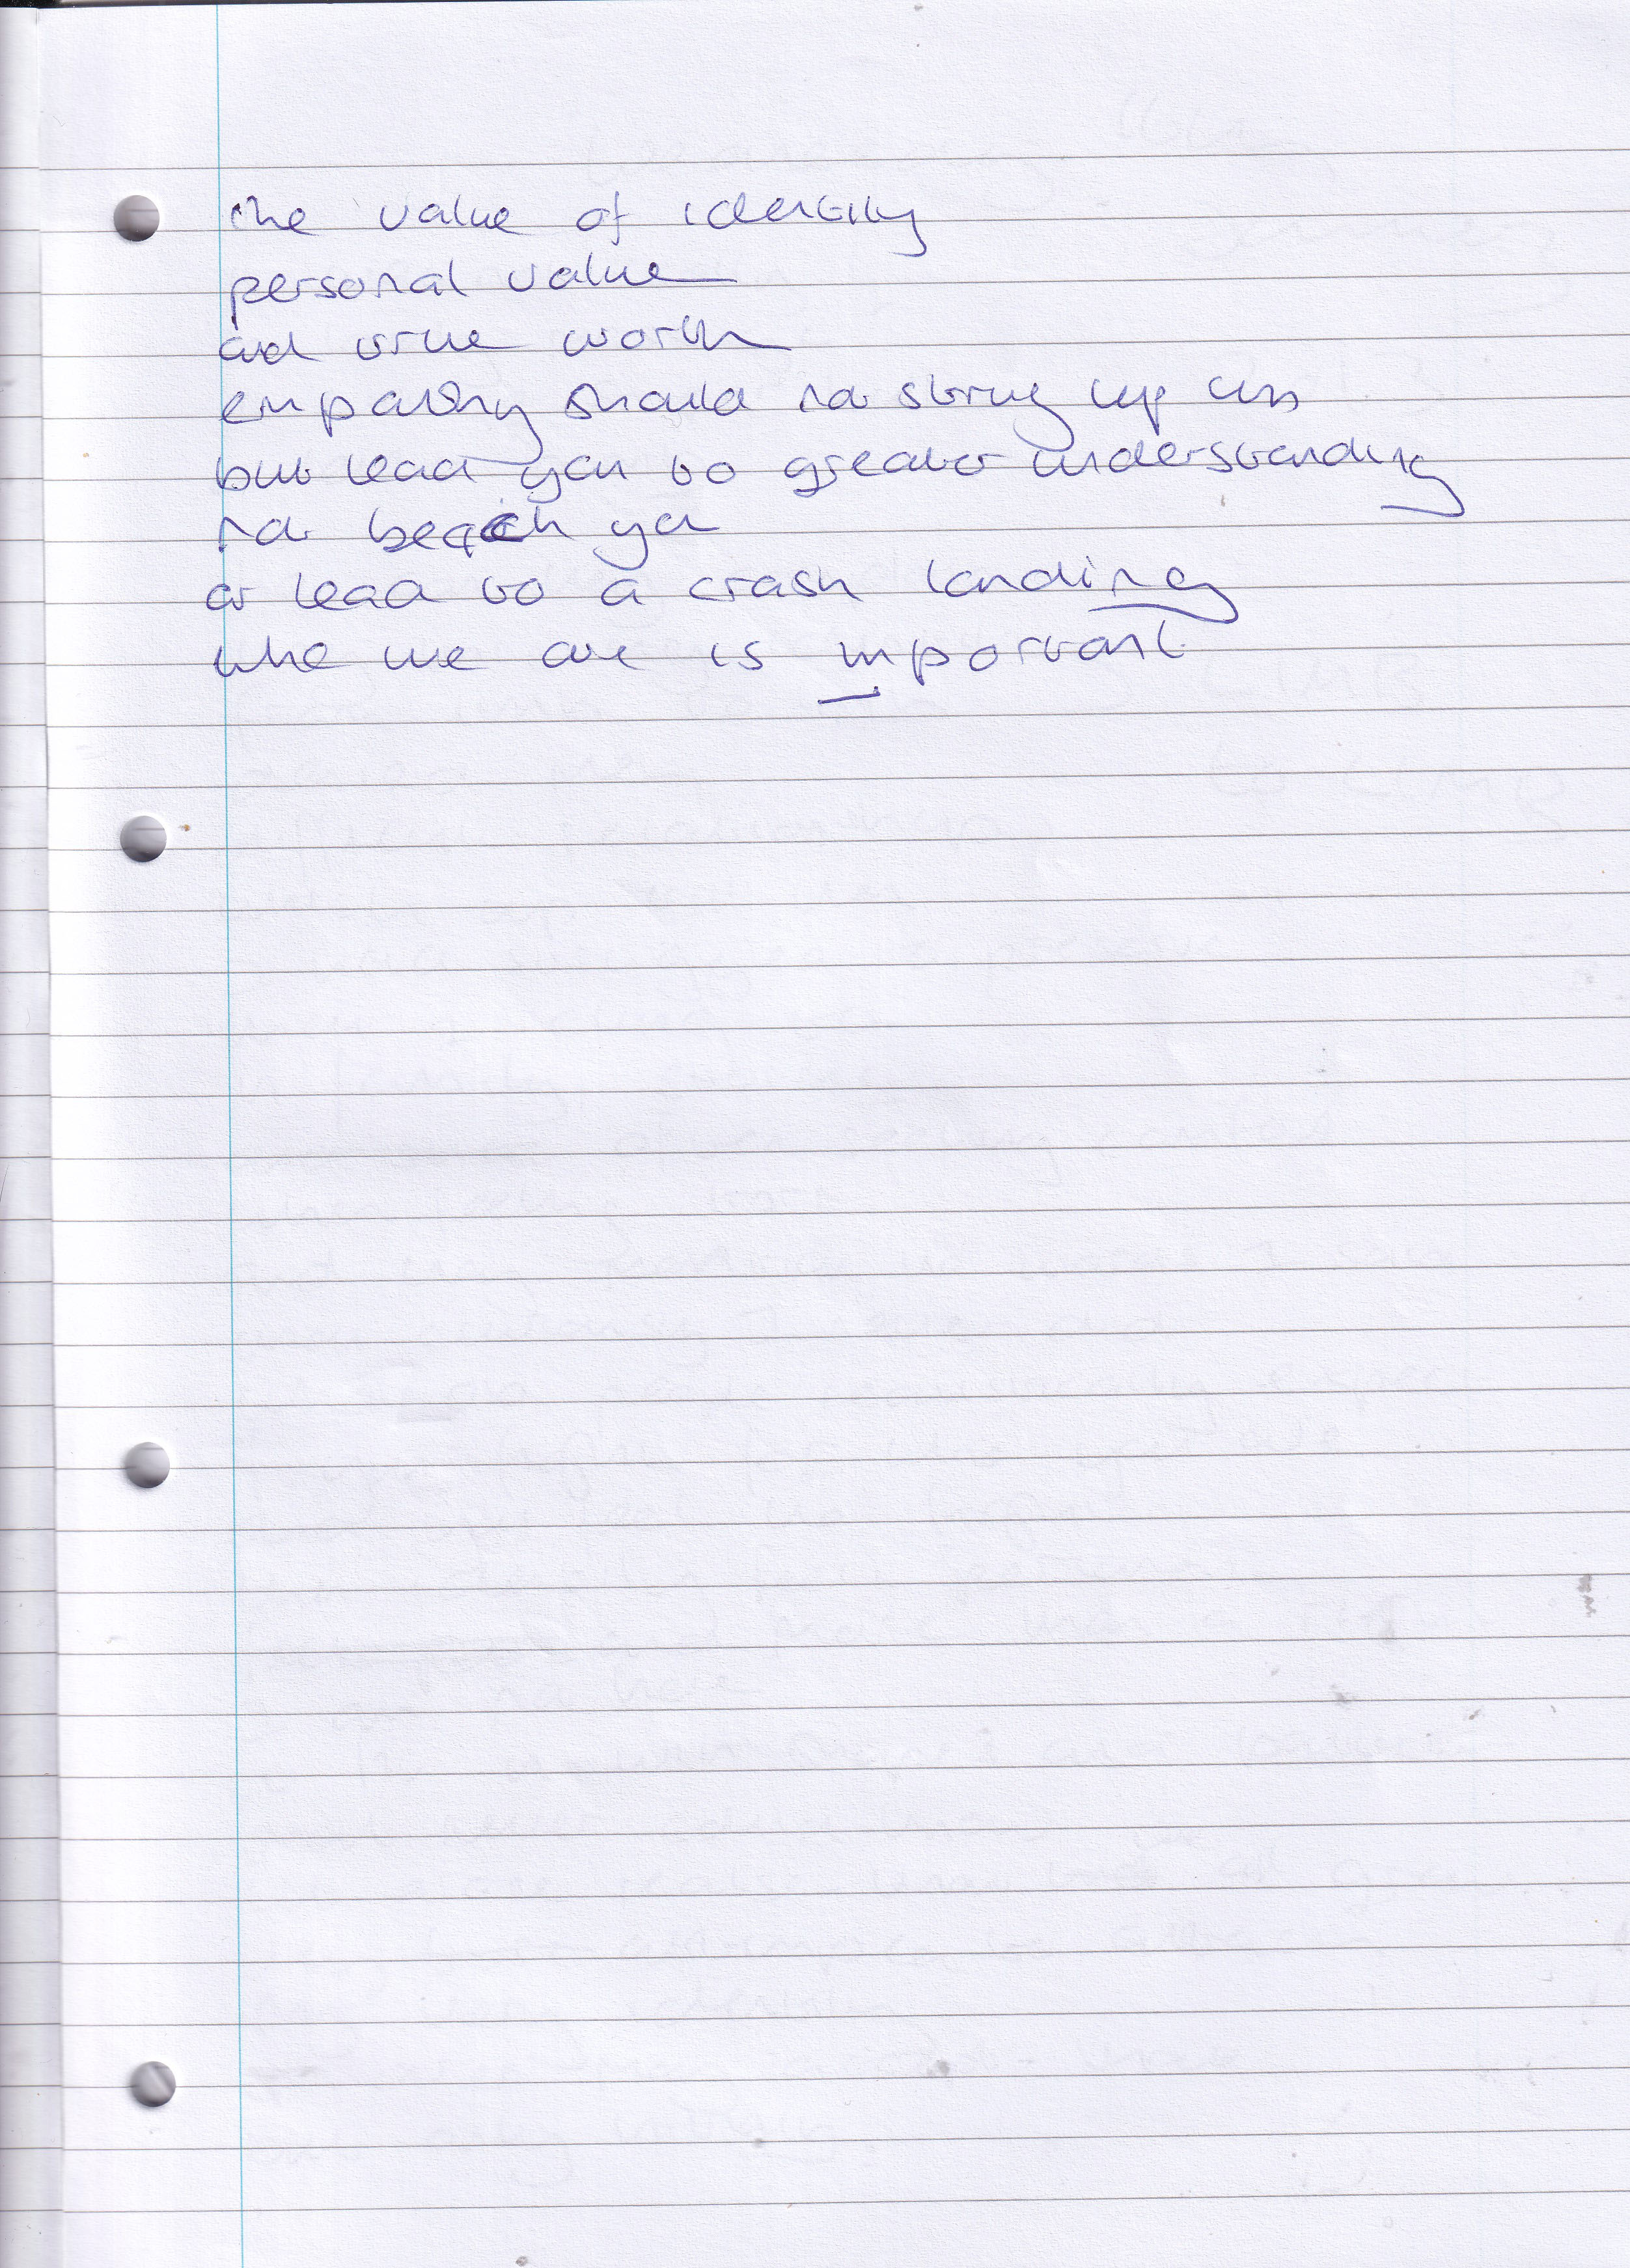 the value of identity
personal value
and true worth
empathy should not string up us
but lead you to greater understanding
not beach you
or lead to a crash landing
who we are is important